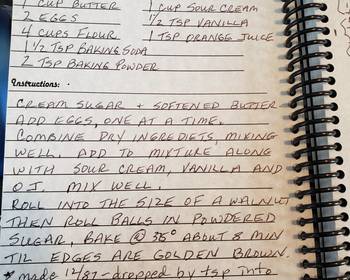 1 CUP BUTTER 1 CUP SOUR CREAM
2 EGGS 1/2 TSP VANILLA
4 CUPS FLOUR 1 TSP ORANGE JUICE
1 1/2 TSP BAKING SODA
2 TSP BAKING POWDER
Instructions:
CREAM SUGAR + SOFTENED BUTTER
ADD EGGS, ONE AT A TIME.
COMBINE DRY INGREDIETS, MIXING
WELL. ADD TO MIXTURE ALONG
WITH SOUR CREAM, VANILLA AND
O.J. MIX WELL.
ROLL INTO THE SIZE OF A WALNUT
THEN ROLL BALLS IN POWDERED
SUGAR, BAKE @ ABOUT 8 MIN
TIL EDGES ARE GOLDEN BROWN.
* made 12/87 - dropped by tsp into